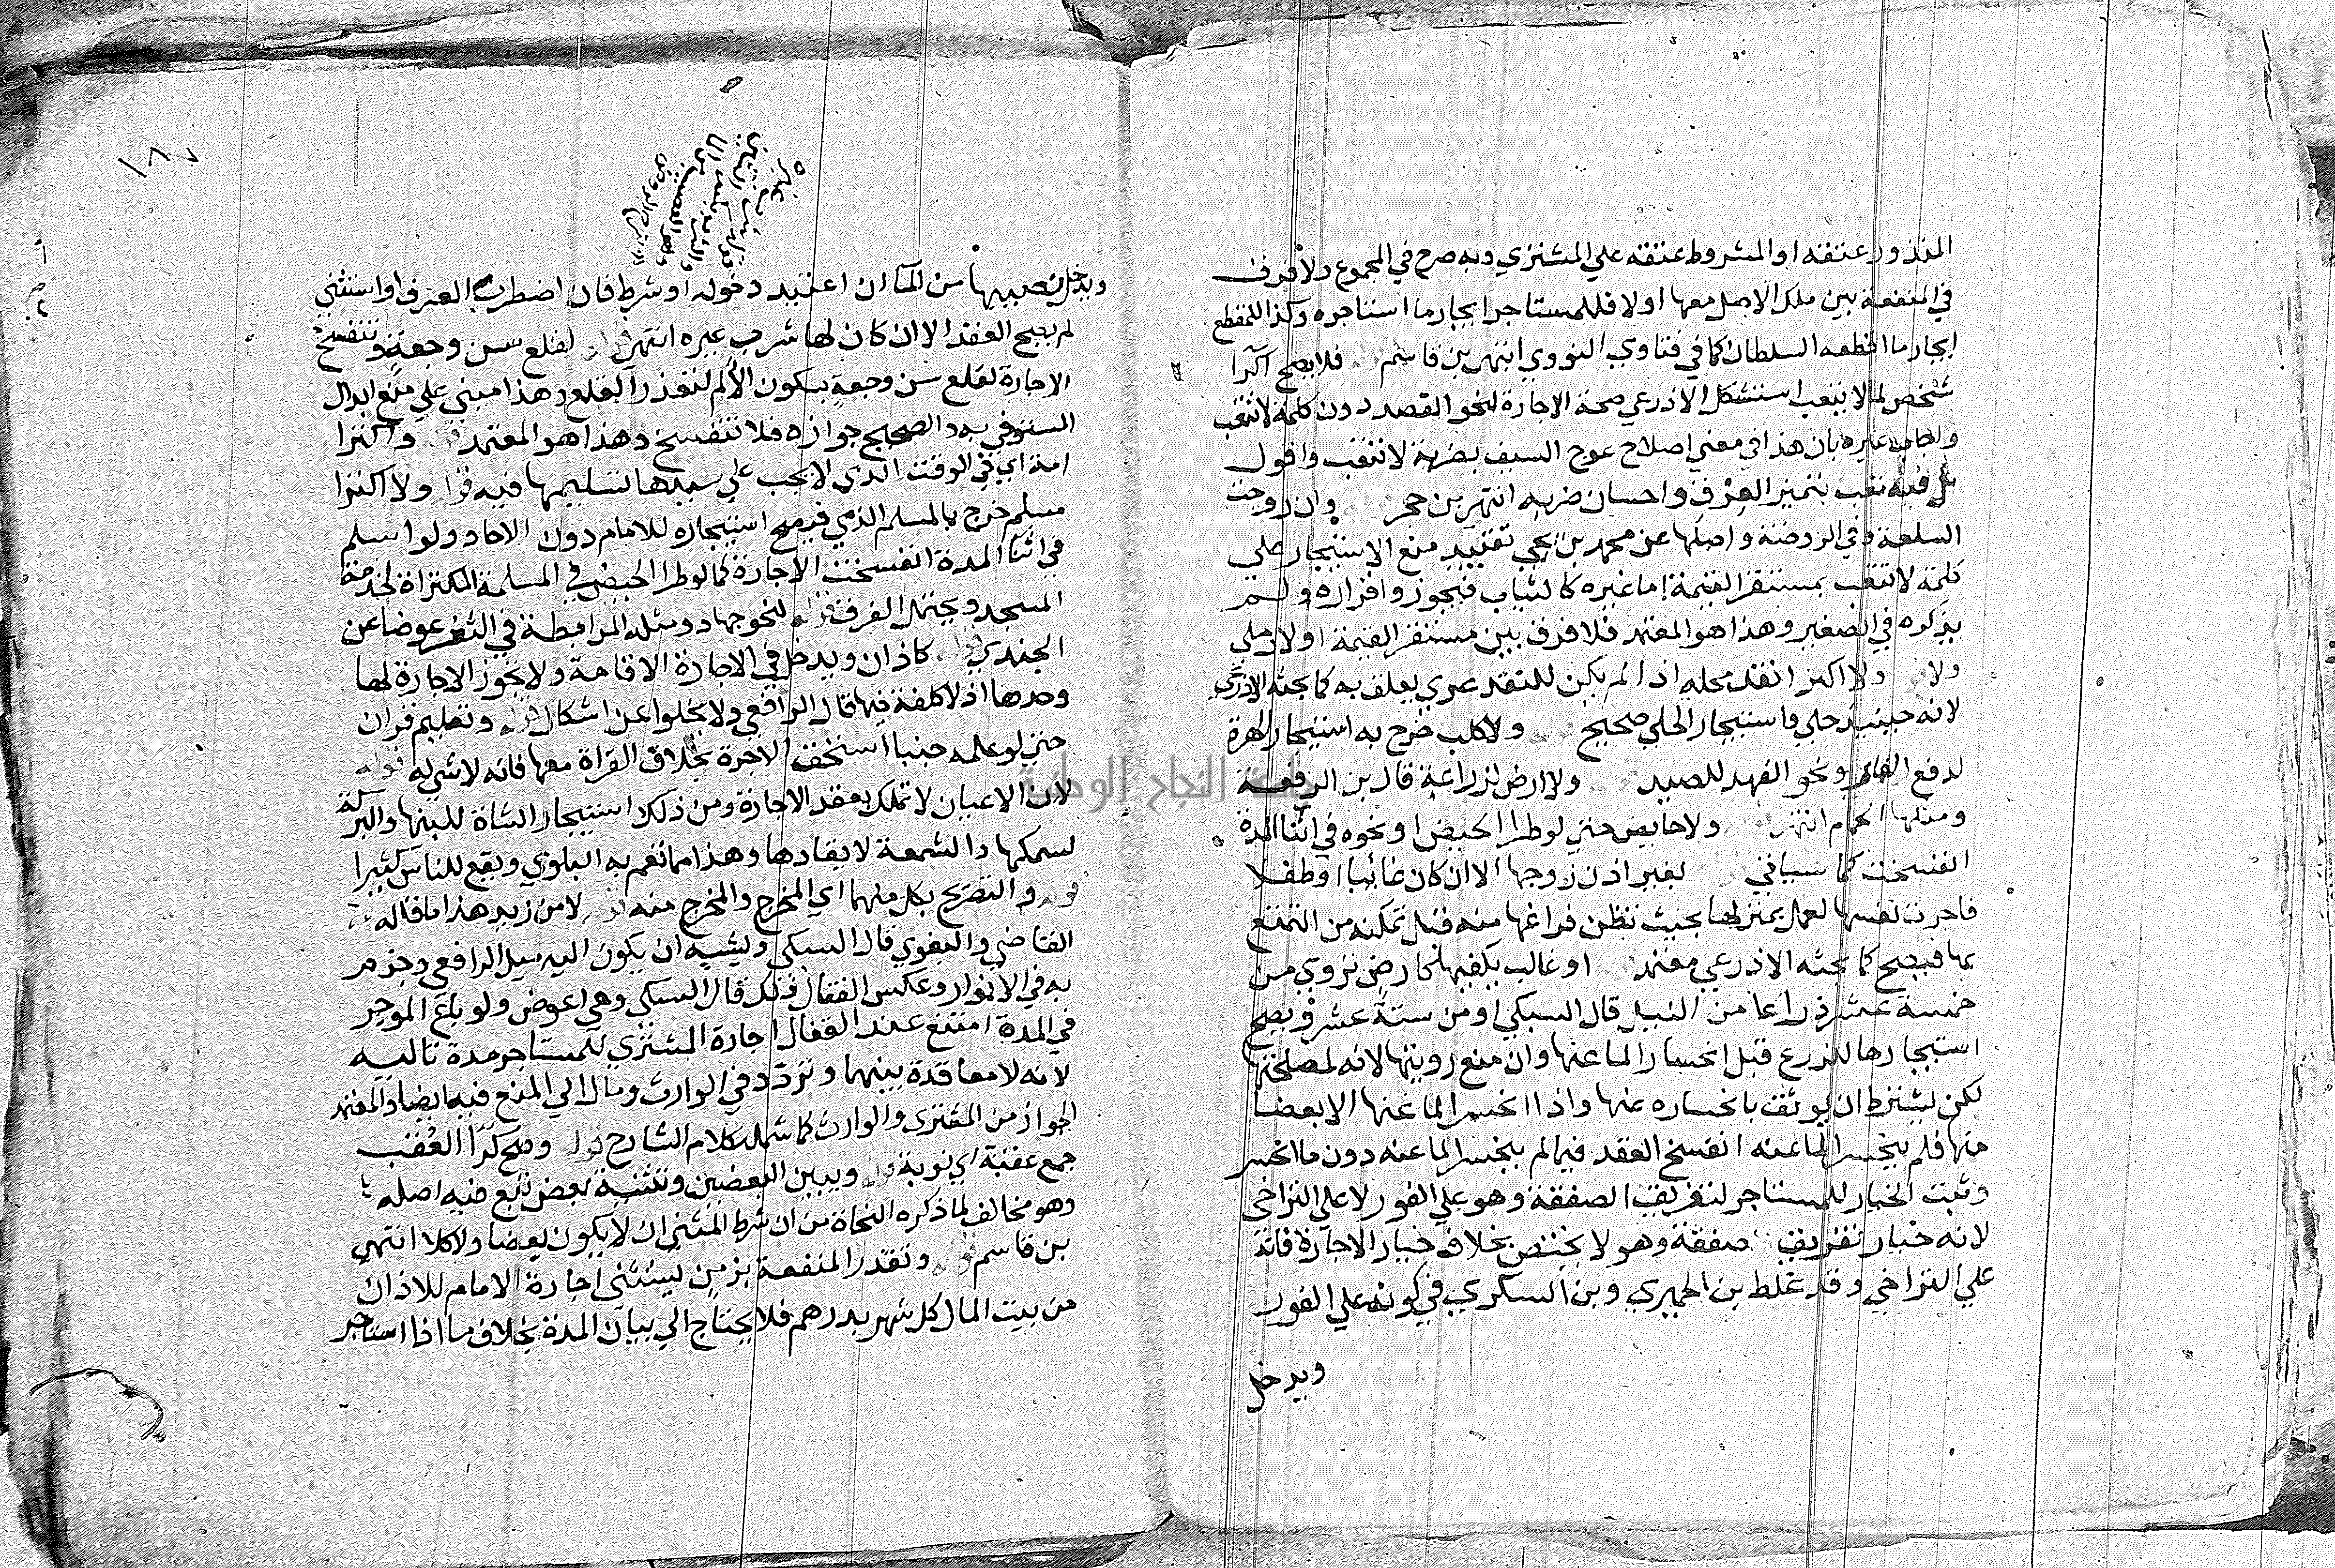 المنذور عتقه او المشروط عتقه علي المشتري وبه صرح في المجموع ولا فرق
في المنفعة بين ملك الاصل معها او لا فللمستاجر ايجار ما استاجره وكذا للمقطع
ايجار ما اقطعه السلطان كما في فتاوي النووي انتهي بن قاسم قوله فلا يصح اكترا
شخص لما لا يتعب استشكل الاذرعي صحة الاجارة لنحو الفصد دون كلمة لا تتعب
واجاب غيره بان هذا في معني اصلاح عوج السيف بضربة لا تتعب واقول
بل فيه تعب بتمييز العرق واحسان ضربه انتهي بن حجر وان روجت
السلعة وفي الروضة واصلها عن محمد بن يحيي تقييد منع الاستيجار علي
كلمة لا تتعب بمستقر القيمة اما غيره كالثياب فيجوز واقراره ولم
يذكره في الصغير وهذا هو المعتمد فلا فرق بين مستقر القيمة او لا رملي
ولا ولا اكترا نقد محله اذا لم يكن للنقد عري يعلق به كما بحثه الاذرعي
لانه حينيذ حلي واستيجار الحلي صحيح قوله ولا كلب خرج به استيجار الهرة
لدفع الفار ونحو الفهد للصيد ولا ارض لزراعة قال بن الرفعة
ومثلها الحمام انتهي قوله ولا حايض حتي لو طرا الحيض او نحوه في اثنا المدة
انفسخت كما سياتي لغير اذن زوجها الا ان كان غائبا او طفلا
فاجرت نفسها لعمل بمنزلها بحيث تظن فراغها منه قبل تمكنه من التمتع
بها فيصح كما بحثه الاذرعي معتمد او غالب يكفيها كارض تروي من
خمسة عشر ذراعا من النيل قال السبكي او من ستة عشر ويصح
استيجارها للزرع قبل انحسار الما عنها وان منع رويتها لانه لمصلحتها
لكن يشترط ان يوثق بانحساره عنها واذا انحسر الما عنها الا بعضا
منها فلم ينحسر الما عنه انفسخ العقد فيما لم ينحسر الما عنه دون ما انحسر
وثبت الخيار للمستاجر لتفريق الصفقة وهو علي الفور لا علي التراخي
لانه خيار تفريق صفقة وهو لا يختص بخلاف خيار الاجارة فانه
علي التراخي وقد غلط بن الحميري وبن السكري في كونه علي الفور
ويدخل
١٨٧
ويدخل نصيبها من الما ان اعتيد دخوله او شرط فان اضطرب العرف او استثني
لم يصح العقد الا ان كان لها شرب غيره انتهي قوله لقلع سن وجعة وتنفسخ
الاجارة لقلع سن وجعة بسكون الألم لتعذر القلع وهذا مبني علي منع ابدال
المستوفي به والصحيح جوازه فلا تنفسخ وهذا هو المعتمد قوله واكترا
امة اي في الوقت الذي لا يجب علي سيدها تسليمها فيه قوله ولا اكترا
مسلم خرج بالمسلم الذمي فيصح استيجاره للامام دون الاحاد ولو اسلم
في اثنا المدة انفسخت الاجارة كما لو طرا الحيض في المسلمة المكتراة لخدمة
المسجد ويحتمل الفرق قوله لنحو جهاد ومثله المرابطة في الثغر عوضا عن
الجندي قوله كاذان ويدخل في الاجارة الاقامة ولا تجوز الاجارة لها
وحدها اذ لا كلفة فيها قال الرافعي ولا يخلوا عن اشكال قوله وتعليم قران
حتي لو علمه جنبا استحق الاجرة بخلاف القراة معها فانه لا شي له قوله
لان الاعيان لا تملك بعقد الاجارة ومن ذلك استيجار الشاة للبنها والبركة
لسمكها والشمعة لايقادها وهذا مما تعم به البلوي ويقع للناس كثيرا
قوله والتصريح بكل منهما اي المخرج والمخرج منه قوله لا من زيد هذا ما قاله
القاضي والبغوي قال السبكي ويشبه ان يكون اليه ميل الرافعي وجزم
به في الانوار وعكس القفال ذلك قال السبكي وهي اعوض ولو باع الموجر
في المدة امتنع عند القفال اجارة المشتري للمستاجر مدة تاليه
لانه لا معاقدة بينهما وتردد في الوارث ومال الي المنع فيه ايضا والمعتمد
الجواز من المشتري والوارث كما شمله كلام الشارح قوله وصح كرا العقب
جمع عقبة اي نوبة قوله ويبين البعضين وتثنية بعض تبع فيه اصله
وهو مخالف لما ذكره النحاة من ان شرط المثني ان لا يكون بعضا ولا كلا انتهي
بن قاسم قوله وتقدر المنفعة بزمن يستثني اجارة الامام للاذان
من بيت المال كل شهر بدرهم فلا يحتاج الي بيان المدة بخلاف ما اذا استاجر
جامعة النجاح الوطنية